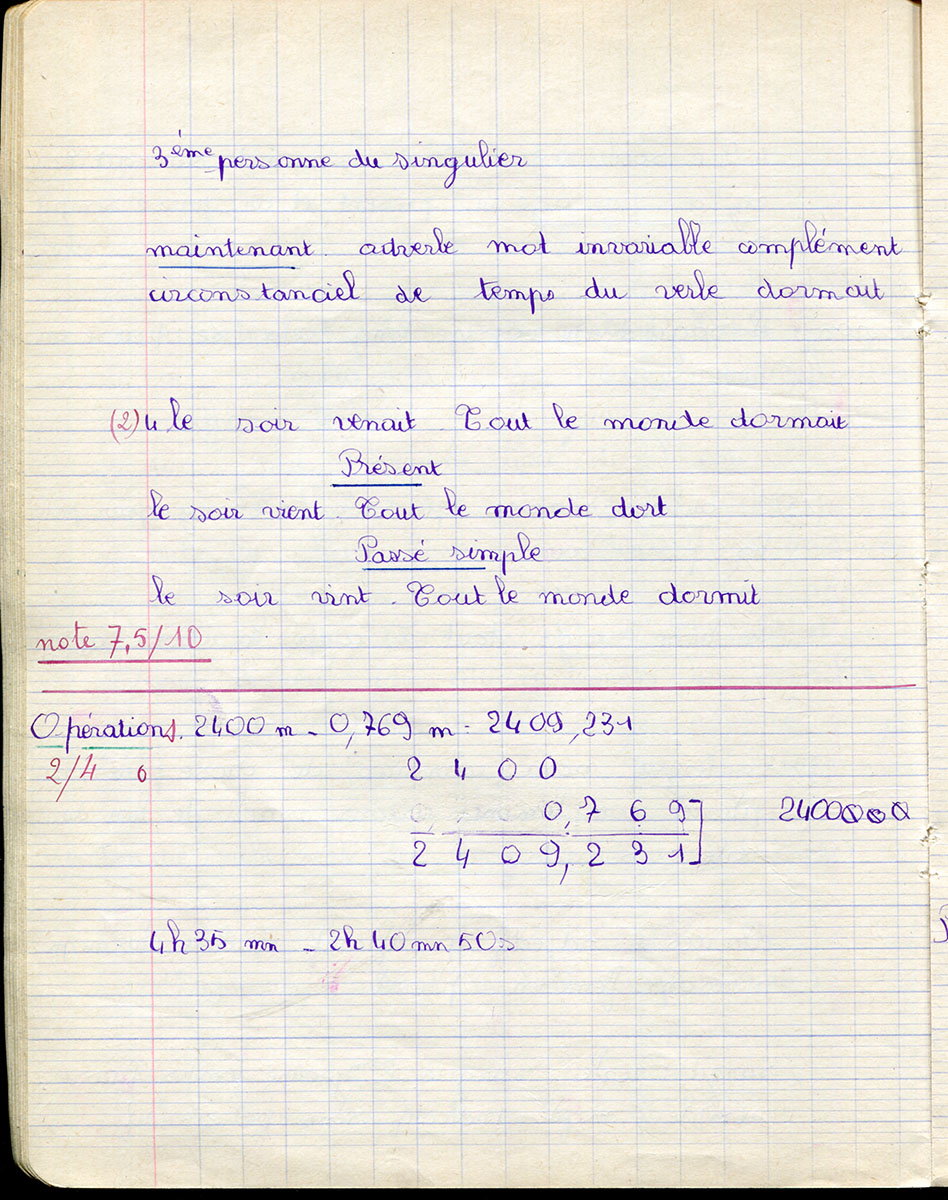 3ème personne du singulier
maintenant. adverbe mot invariable complément
circonstanciel de temps du verbe dormait
(2) 4 le soir venait. Tout le monde dormait
Présent
le soir vient. Tout le monde dort
Passé simple
le soir vint. Tout le monde dormit
note 7,5/10
Opérations. 2400 m - 0,769 m = 2409,231
2/4 0
2 4 0 0
0,7 6 9
2400000
2 4 0 9,2 3 1
4h 35 mn - 2h 40 mn 50s